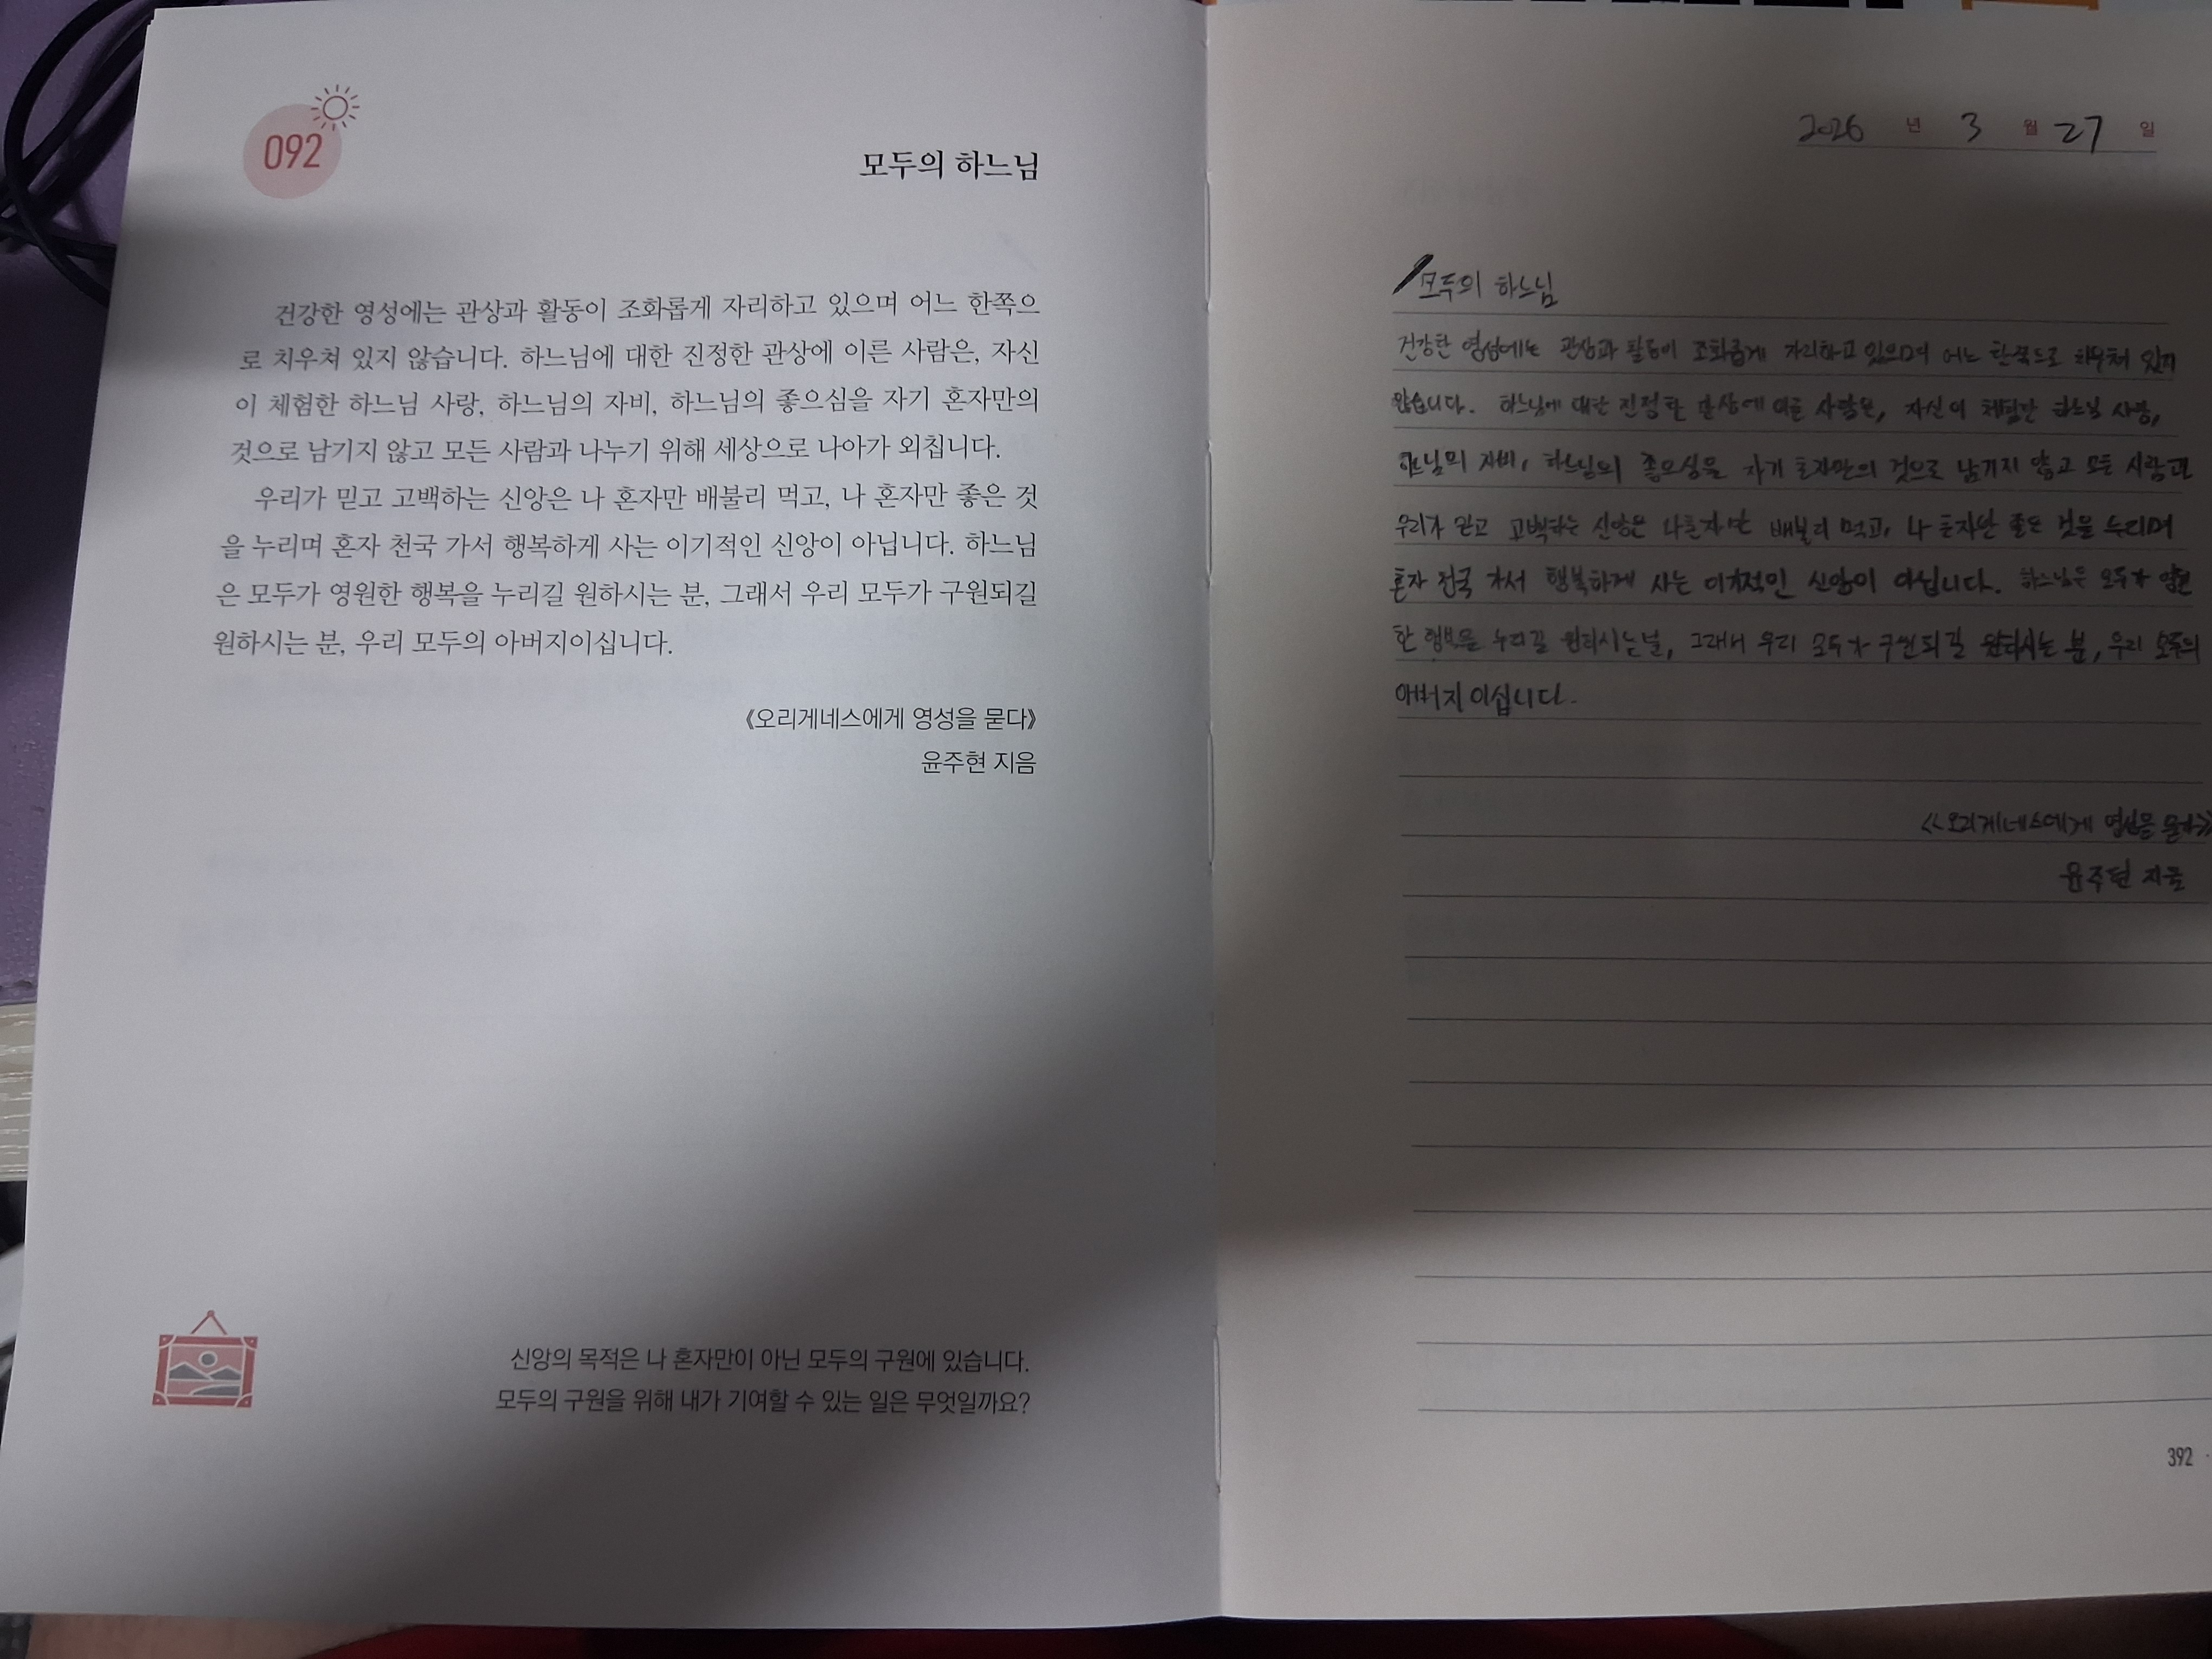 092
모두의 하느님
건강한 영성에는 관상과 활동이 조화롭게 자리하고 있으며 어느 한쪽으
로 치우쳐 있지 않습니다. 하느님에 대한 진정한 관상에 이른 사람은, 자신
이 체험한 하느님 사랑, 하느님의 자비, 하느님의 좋으심을 자기 혼자만의
것으로 남기지 않고 모든 사람과 나누기 위해 세상으로 나아가 외칩니다.
우리가 믿고 고백하는 신앙은 나 혼자만 배불리 먹고, 나 혼자만 좋은 것
을 누리며 혼자 천국 가서 행복하게 사는 이기적인 신앙이 아닙니다. 하느님
은 모두가 영원한 행복을 누리길 원하시는 분, 그래서 우리 모두가 구원되길
원하시는 분, 우리 모두의 아버지이십니다.
《오리게네스에게 영성을 묻다》
윤주현 지음
신앙의 목적은 나 혼자만이 아닌 모두의 구원에 있습니다.
모두의 구원을 위해 내가 기여할 수 있는 일은 무엇일까요?
2026 년 3 월 27 일
모두의 하느님
건강한 영성에는 관상과 활동이 조화롭게 자리하고 있으며 어느 한쪽으로 치우쳐 있지
않습니다. 하느님에 대한 진정한 관상에 이른 사람은, 자신이 체험한 하느님 사랑,
하느님의 자비, 하느님의 좋으심을 자기 혼자만의 것으로 남기지 않고 모든 사람과
우리가 믿고 고백하는 신앙은 나 혼자만 배불리 먹고, 나 혼자만 좋은 것을 누리며
혼자 천국 가서 행복하게 사는 이기적인 신앙이 아닙니다. 하느님은 모두가 영원
한 행복을 누리길 원하시는, 그래서 우리 모두가 구원되길 원하시는 분, 우리 모두의
아버지이십니다.
<<오리게네스에게 영성을 묻다>>
윤주현 지음
392